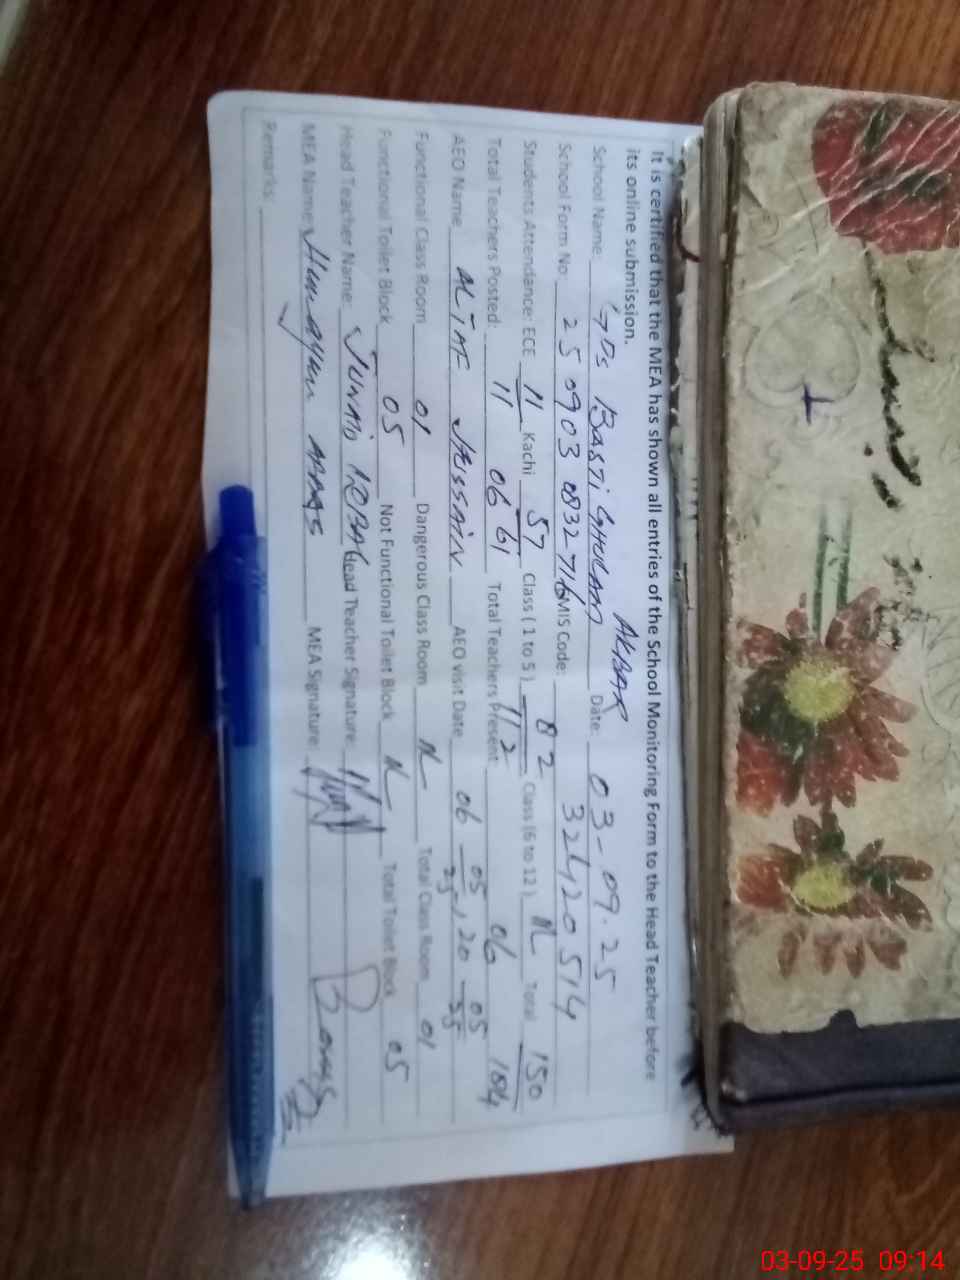 It is certified that the MEA has shown all entries of the School Monitoring Form to the Head Teacher before
its online submission.
AKBAR
School Name: GPS BASTI GHULAM Date: 03-09.25
School Form No: 25 0903 0832716 EMIS Code: 32420514
Students Attendance: ECE 11 Kachi 57 Class (1 to 5) 82 Class (6 to 12) N Total 150
11 61 112 184
Total Teachers Posted: 06 Total Teachers Present: 06
AEO Name ALTAF HUSSAIN AEO visit Date 06 05 25, 20 05 25
Functional Class Room 01 Dangerous Class Room N Total Class Room 01
Functional Toilet Block 05 Not Functional Toilet Block N Total Toilet Block 05
Head Teacher Name: JUNAID IQBAL Head Teacher Signature:
MEA Name: Humayun ABBAS MEA Signature:
Remarks:
03-09-25 09:14